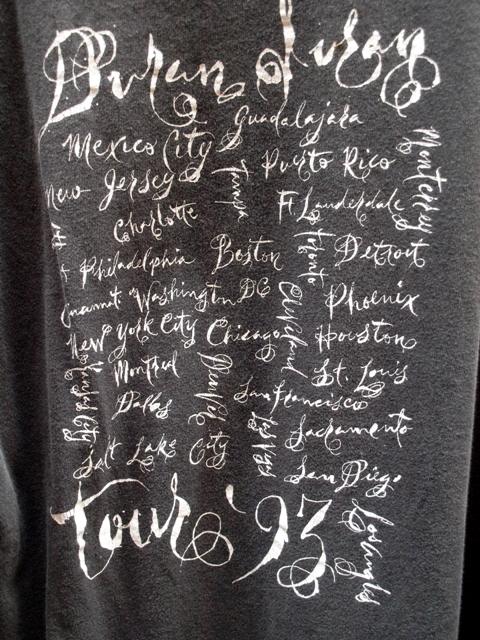 Duran Duran
Guadalajara
Mexico City
Puerto Rico
Monterrey
New Jersey
Tampa
Ft Lauderdale
Charlotte
Toronto
Detroit
Philadelphia
Boston
Washington DC
Cleveland
Phoenix
New York City
Chicago
Houston
Montreal
Denver
St. Louis
Dallas
San Francisco
Sacramento
Salt Lake City
Las Vegas
San Diego
Tour '93
Los Angeles